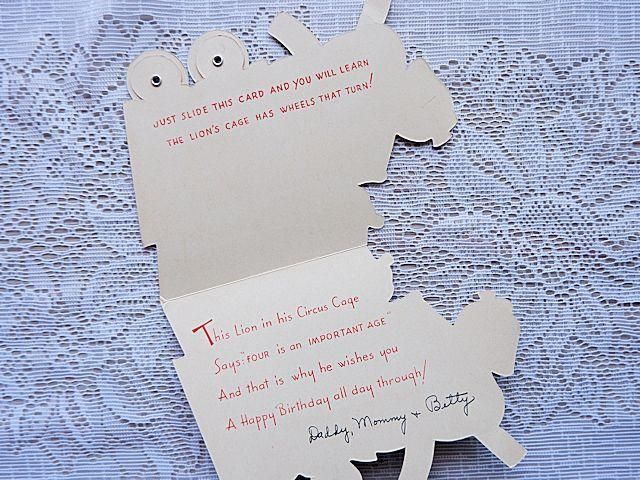 JUST SLIDE THIS CARD AND YOU WILL LEARN
THE LION'S CAGE HAS WHEELS THAT TURN!
This Lion in his Circus Cage
Says: "FOUR is an IMPORTANT AGE"
And that is why he wishes you
A Happy Birthday all day through!
Daddy, Mommy + Betty